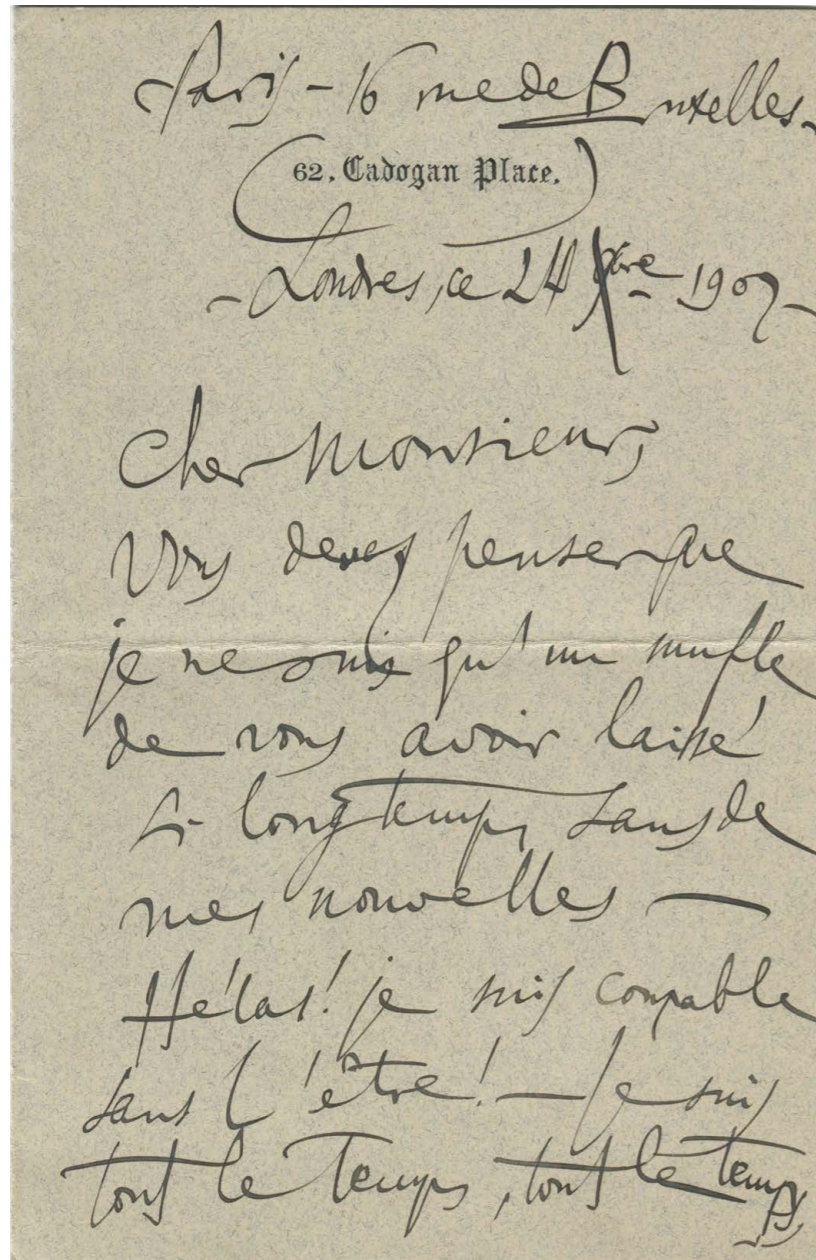 Paris - 16 rue de Bruxelles -
62, Cadogan Place.
- Londres, ce 24 Xbre - 1907 -
Cher Monsieur,
Vous devez penser que
je ne suis qu'un mufle
de vous avoir laissé
si longtemps sans de
mes nouvelles —
Hélas! je suis coupable
sans l'être! — Je suis
tout le temps, tout le temps